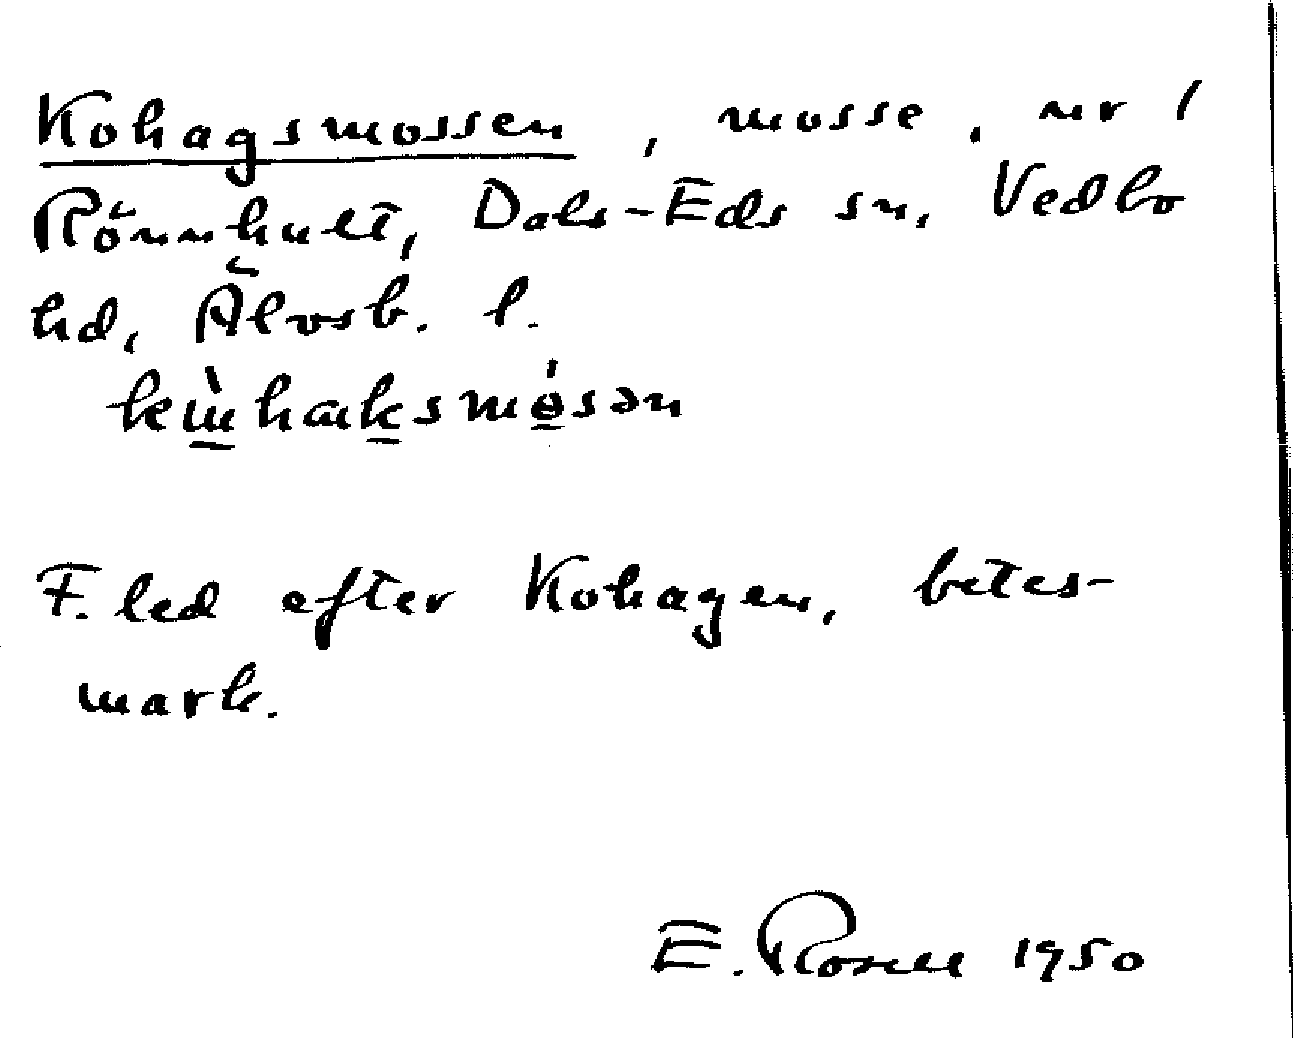 Kohagsmossen, mosse, nr 1
Rönnhult, Dals-Eds sn, Vedbo
hd, Älvsb. l.
F. led efter Kohagen, betes-
mark.
E. Rosell 1950